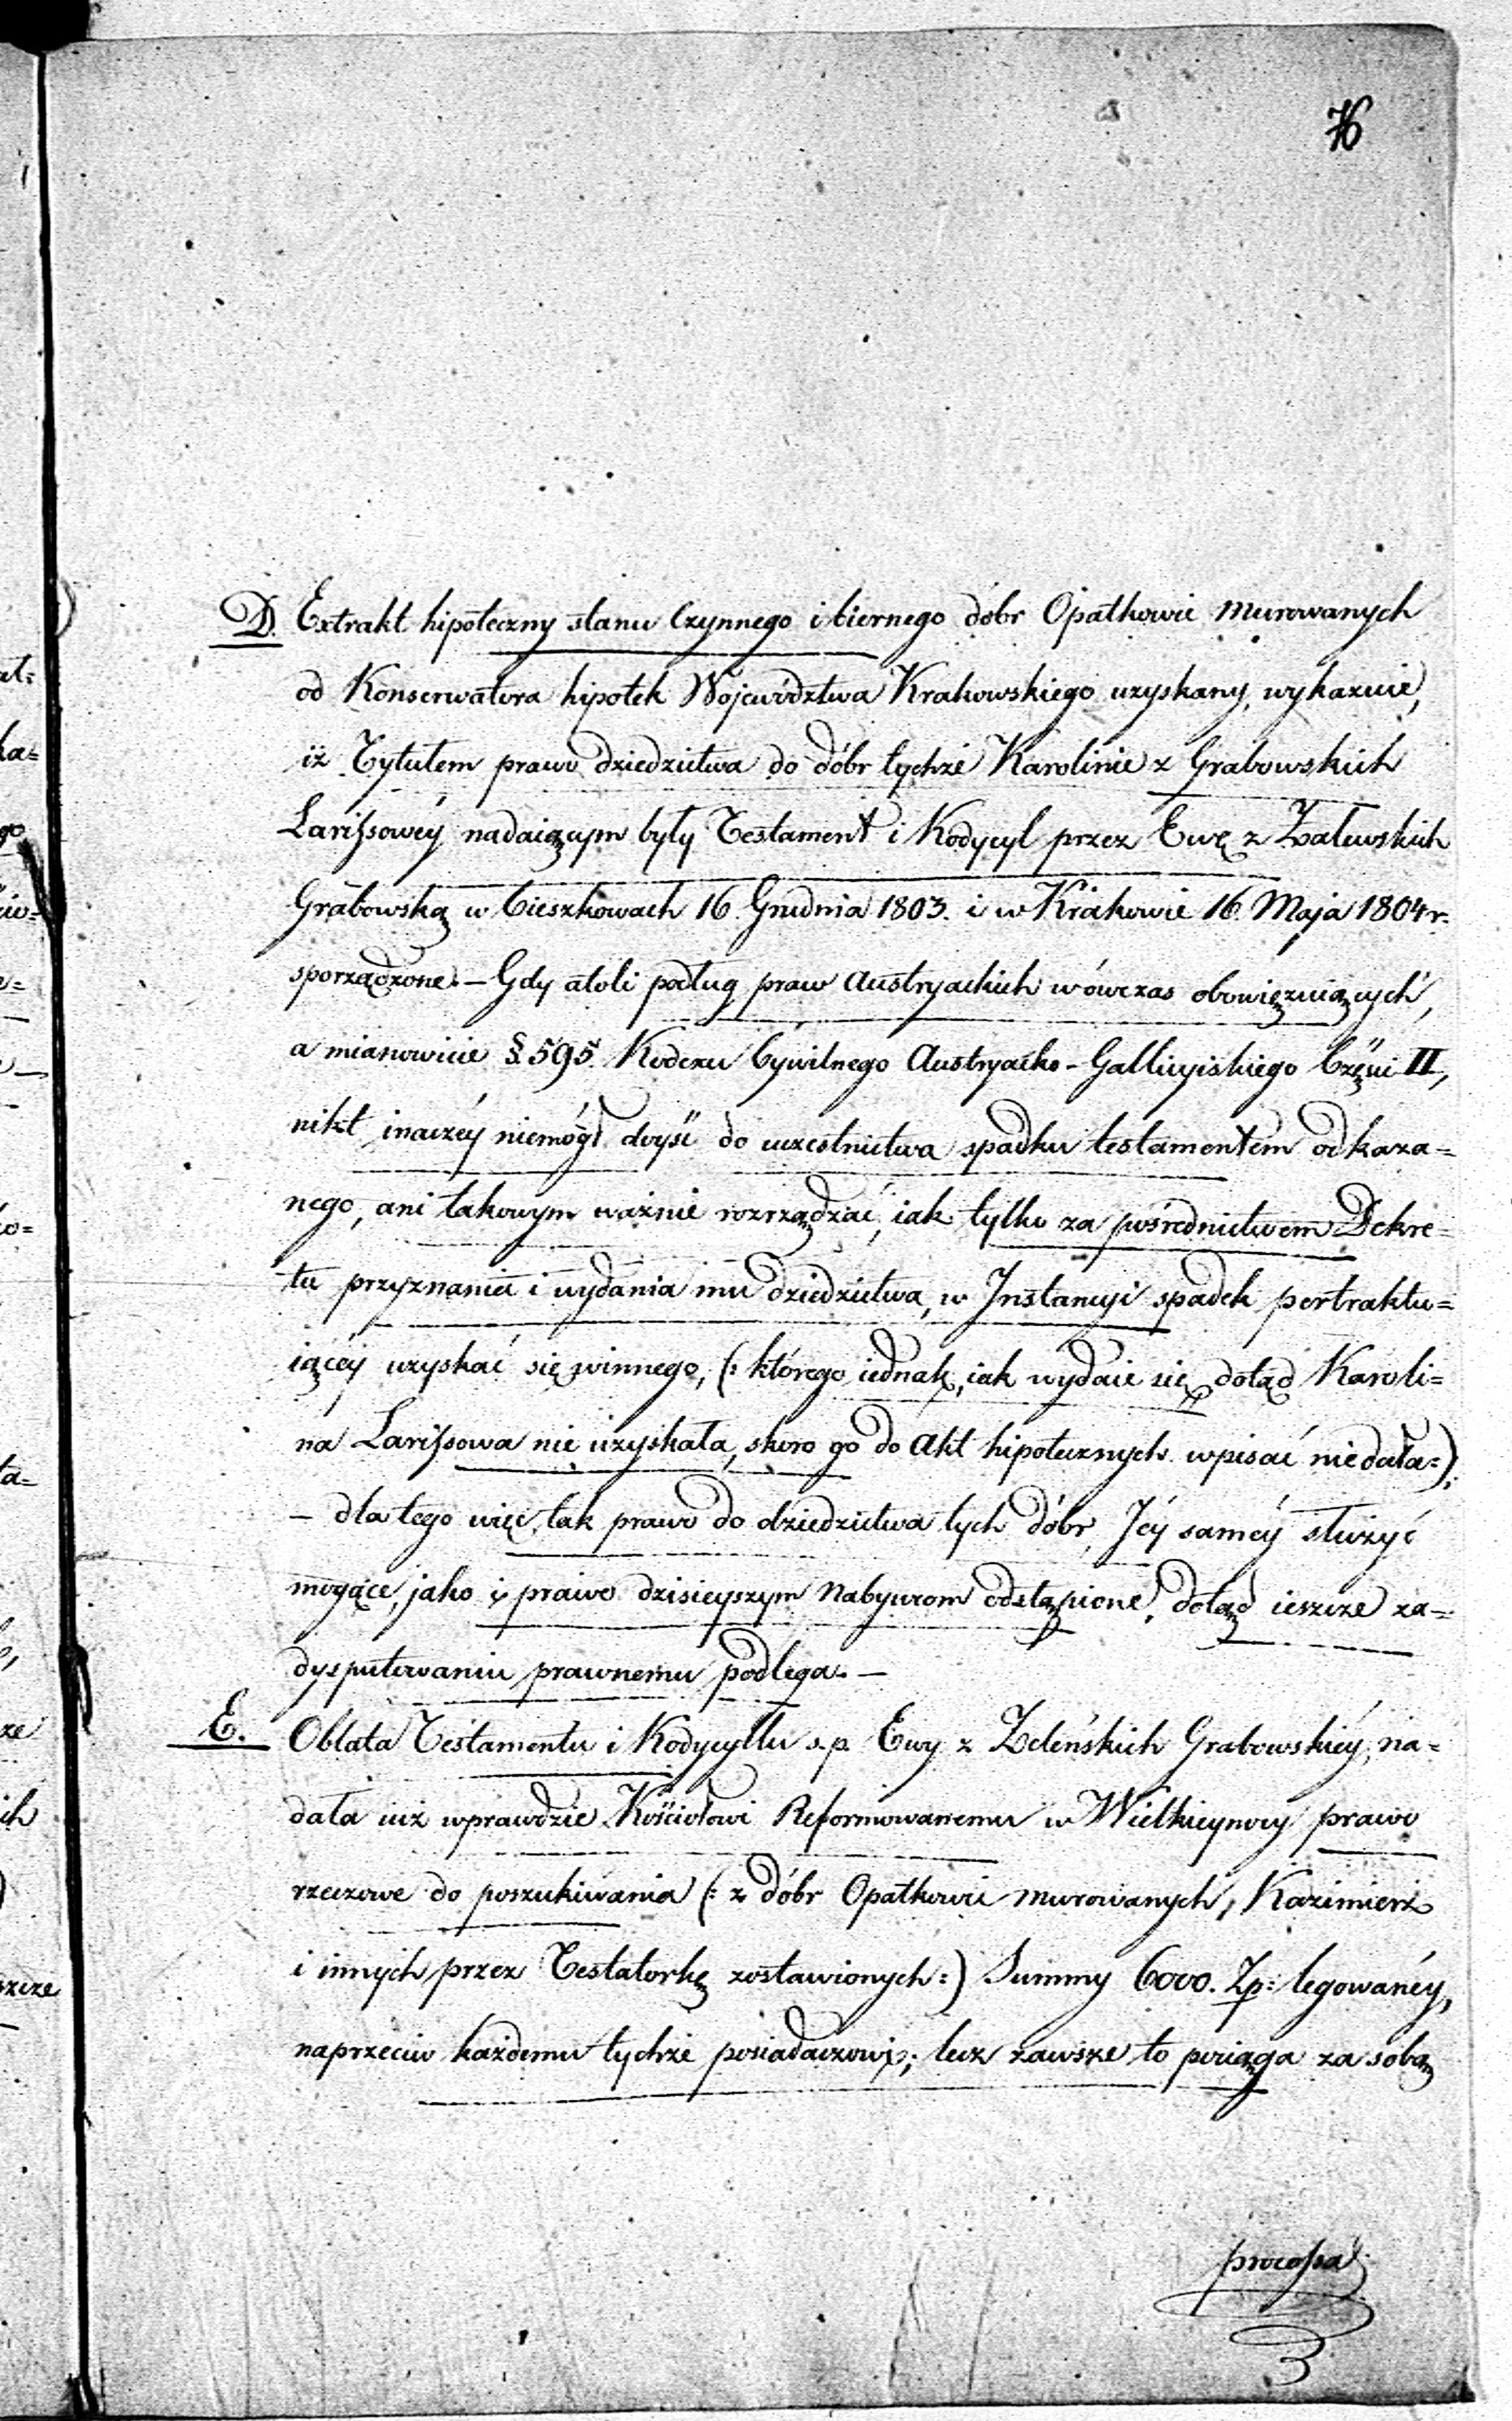 76
D. Extrakt hipoteczny stanu czynnego i biernego dóbr Opatkowic murowanych
od Konserwatora hipotek Województwa Krakowskiego uzyskany, wykazuie,
iż Tytułem prawo dziedzictwa do dóbr tychże Karolinie z Grabowskich
Larissowéy nadaiącym były Testament i Kodycyl przez Ewę z Zalewskich
Grabowską w Cieszkowach 16. Grudnia 1803. i w Krakowie 16. Maja 1804 r.
sporządzone. — Gdy atoli podług praw Austryackich wówczas obowięzuiących,
a mianowicie §. 595. Kodexu Cywilnego Austryacko-Gallicyiskiego Części II,
nikt inaczéy niemógł dóyść do uczestnictwa spadku testamentem odkaza=
nego, ani takowym ważnie rozrządzać, iak tylko za pośrednictwem Dekre=
tu przyznania i wydania mu dziedzictwa, w Instancyi spadek pertraktu=
iącéy uzyskać się winnego, (: którego iednak, iak wydaie się dotąd Karoli=
na Larissowa nie uzyskała, skoro go do Akt hipotecznych wpisać nie dała:);
— dla tego więc, tak prawo do dziedzictwa tych dóbr, Jéy saméy służyć
mogące, jako i prawo dzisieyszym Nabywcom odstąpione, dotąd ieszcze za=
dysputowaniu prawnemu podlega. —
E. Oblata Testamentu i Kodycyllu s.p. Ewy z Zeleńskich Grabowskiéy, na=
dała iuż wprawdzie Kościołowi Reformowanemu w Wielkieynocy prawo
rzeczowe do poszukiwania (: z dóbr Opatkowic murowanych, Kazimierz
i innych przez Testatorkę zostawionych:) Summy 6000. Zp: legowanéy,
naprzeciw każdemu tychże posiadaczowi; lecz zawsze to pociąga za sobą
processa